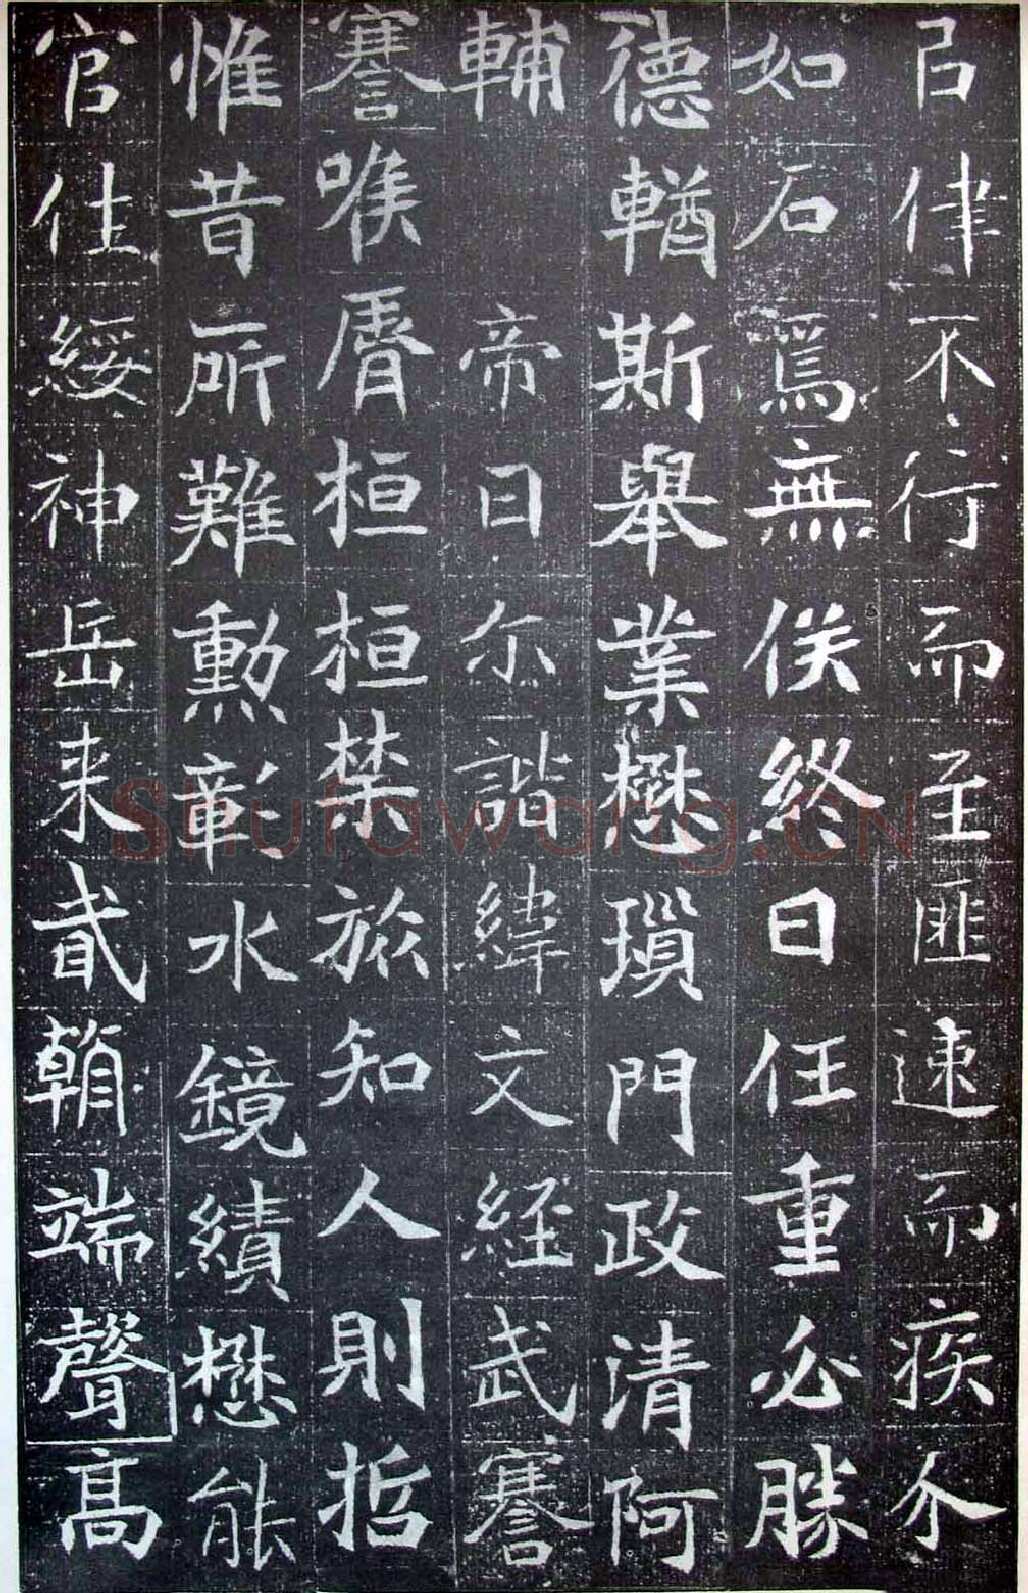 㠯律不行而至匪速而疾介
如石焉無俟終日任重必勝
德輶斯舉業懋瑣門政清阿
輔 帝曰尒諧緯文經武謇
謇喉脣桓桓禁旅知人則哲
惟昔所難勳彰水鏡績懋能
官往綏神岳来貳朝端聲高
Shufawang.CN